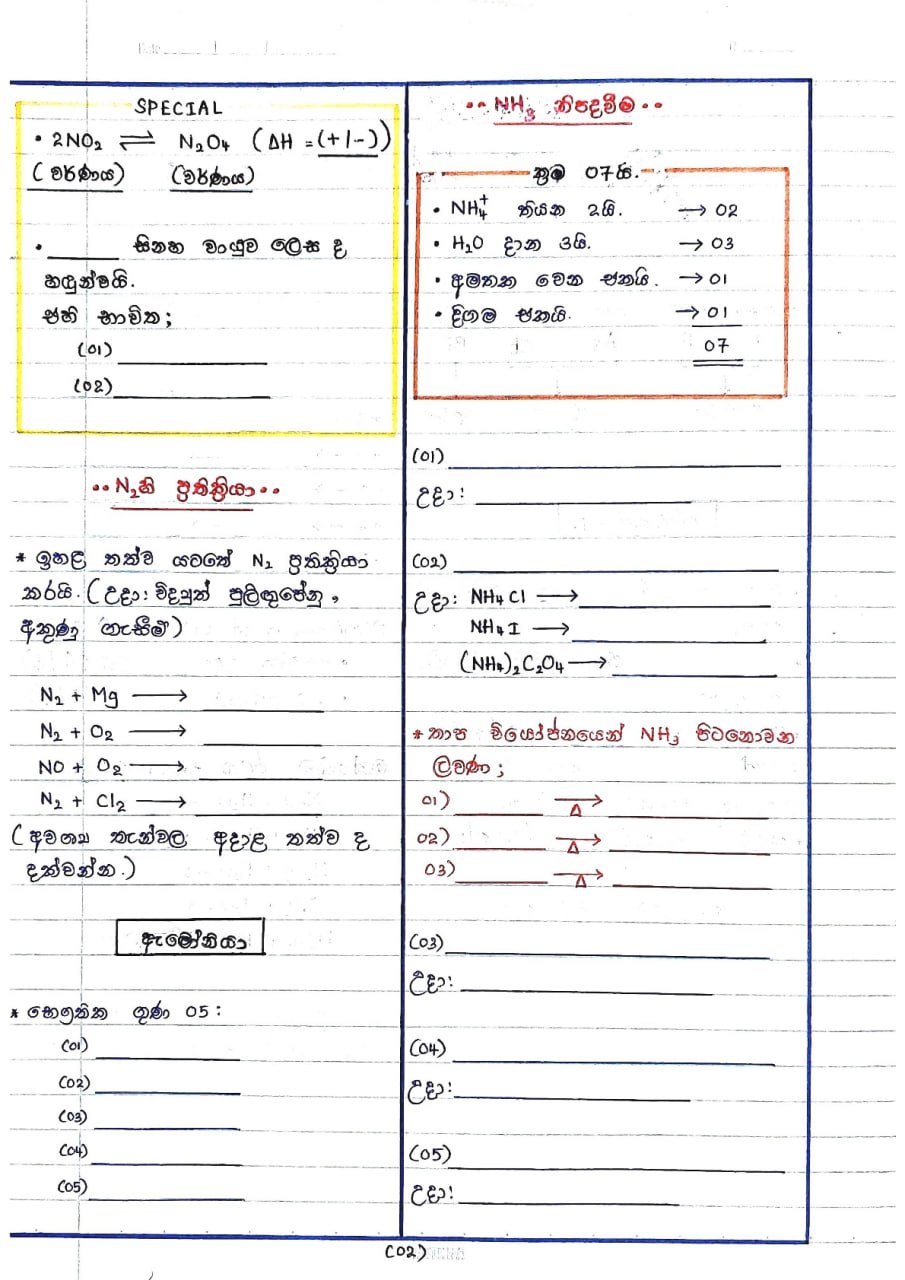 SPECIAL
• 2NO₂ ⇌ N₂O₄ (ΔH = (+/-))
(වර්ණය) (වර්ණය)
• ______ සිනහ වායුව ලෙස ද
හඳුන්වයි.
එහි භාවිත;
(01) ______
(02) ______
•• N₂හි ප්‍රතික්‍රියා ••
* ඉහළ තත්ව යටතේ N₂ ප්‍රතික්‍රියා
කරයි. (උදා: විද්‍යුත් පුලිඟුපේනු,
අකුණු ගැසීම්)
N₂ + Mg ⟶ ______
N₂ + O₂ ⟶ ______
NO + O₂ ⟶ ______
N₂ + Cl₂ ⟶ ______
(අවශ්‍ය තැන්වල අදාළ තත්ව ද
දක්වන්න.)
ඇමෝනියා
* භෞතික ගුණ 05:
(01) ______
(02) ______
(03) ______
(04) ______
(05) ______
•• NH₃ නිපදවීම ••
ක්‍රම 07යි.
• NH₄⁺ තියන 2යි. → 02
• H₂O දාන 3යි. → 03
• අමතක වෙන එකයි. → 01
• දිගම එකයි. → 01
07
(01) ______
උදා: ______
(02) ______
උදා: NH₄Cl ⟶ ______
NH₄I ⟶ ______
(NH₄)₂C₂O₄ ⟶ ______
* තාප වියෝජනයෙන් NH₃ පිටනොවන
ලවණ;
01) ______ →Δ ______
02) ______ →Δ ______
03) ______ →Δ ______
(03) ______
උදා: ______
(04) ______
උදා: ______
(05) ______
උදා: ______
(02)